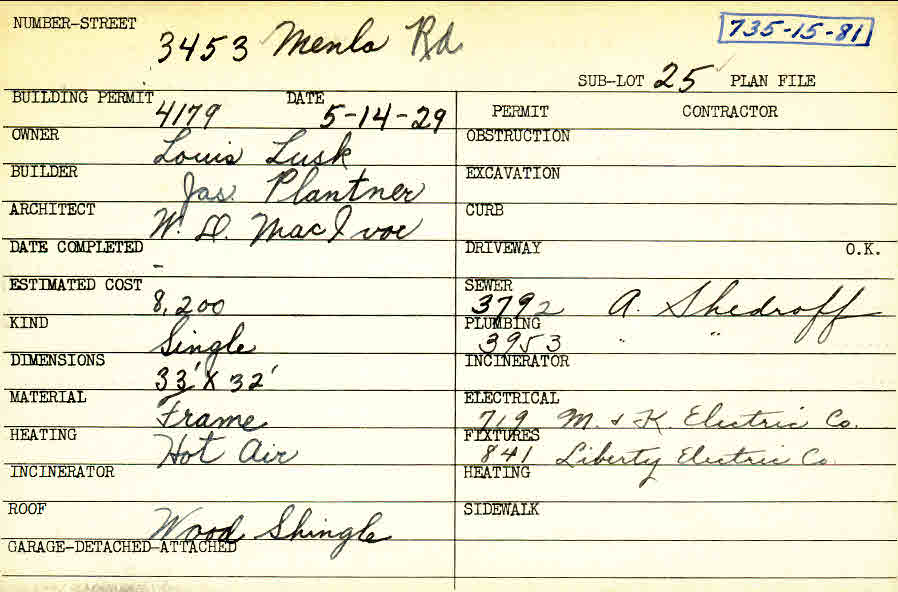 NUMBER-STREET 3453 Menlo Rd. 735-15-81
SUB-LOT 25 PLAN FILE
BUILDING PERMIT 4179 DATE 5-14-29
OWNER Louis Lusk
BUILDER Jas. Plantner
ARCHITECT W. D. MacIvor
DATE COMPLETED -
ESTIMATED COST 8,200
KIND Single
DIMENSIONS 33' X 32'
MATERIAL Frame
HEATING Hot Air
INCINERATOR
ROOF Wood Shingle
GARAGE-DETACHED-ATTACHED
PERMIT CONTRACTOR
OBSTRUCTION
EXCAVATION
CURB
DRIVEWAY O.K.
SEWER 3792 A. Shedroff
PLUMBING 3953 " "
INCINERATOR
ELECTRICAL 719 M. & K. Electric Co.
FIXTURES 841 Liberty Electric Co.
HEATING
SIDEWALK